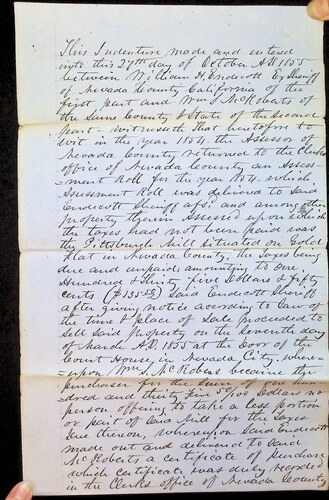 This Indenture made and entered
into this 27th day of October A.D. 1855
between William H. Endicott Ex Sheriff
of Nevada County California of the
first part and Wm S. McRoberts of
the Same County & State of the Second
part - witnesseth That heretofore to
wit in the year 1854 the Assessor of
Nevada County returned to the Clerks
office of Nevada County an Assess-
=ment Roll for the year A.D. 1854 which
Assessment Roll was delivered to Said
Endicott Sheriff afsd and among other
property therein Assessed upon which
the taxes had not been paid was
the Pittsburgh Mill Situated on Gold
Flat in Nevada County, the Taxes being
due and unpaid amounting to One
Hundred & Thirty five Dollars & Fifty
cents ($135.50) Said Endicott Sheriff
after giving notice according to law of
the time & place of Sale proceeded to
sell said Property on the Seventh day
of March A.D. 1855 at the Door of the
Court House in Nevada City. where-
=upon Wm S. McRoberts became the
purchaser for the Sum of One Hun-
=dred and thirty five 50/100 Dollars no
person offering to take a less portion
or part of Said Mill for the taxes
due thereon, whereupon Said Endicott
made out and delivered to Said
McRoberts a certificate of purchase
which certificate was duly recorded
in the Clerks office of Nevada County